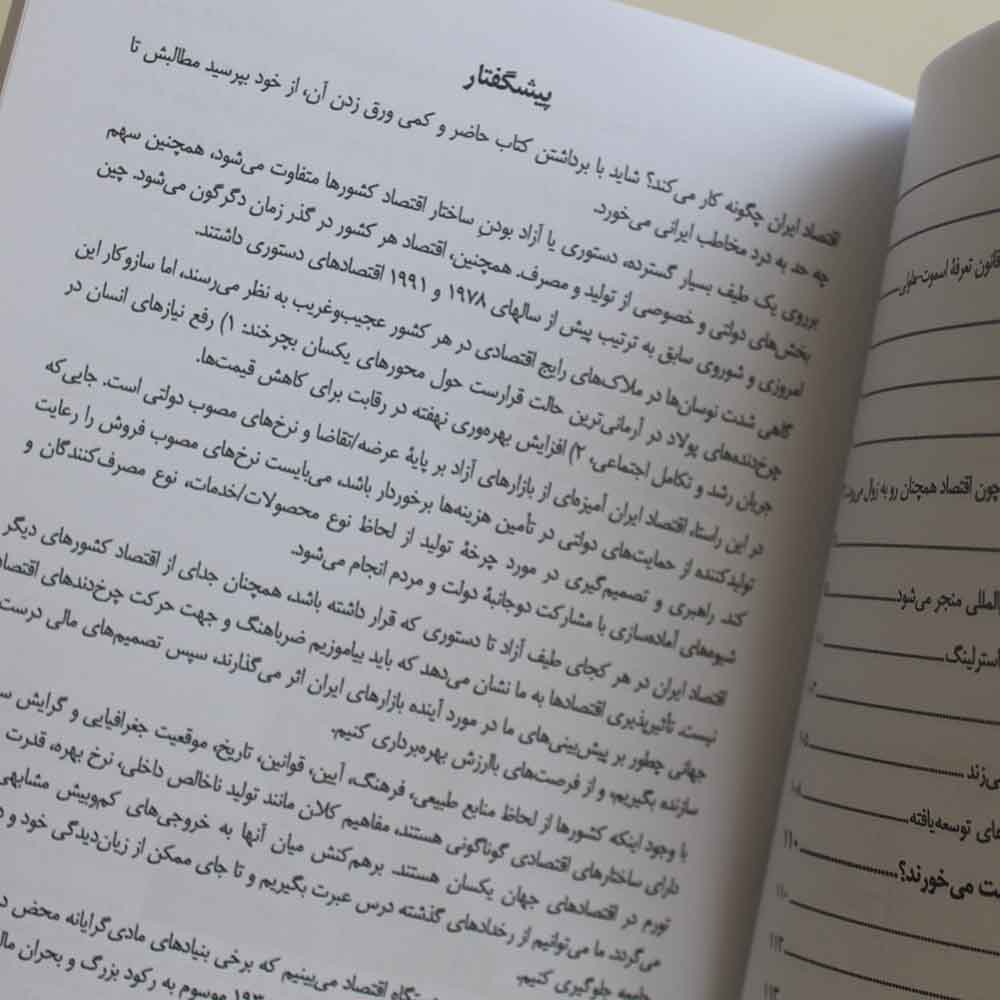 پیشگفتار
اقتصاد ایران چگونه کار می‌کند؟ شاید با برداشتن کتاب حاضر و کمی ورق زدن آن، از خود بپرسید مطالبش تا
چه حد به درد مخاطب ایرانی می‌خورد.
برروی یک طیف بسیار گسترده، دستوری یا آزاد بودنِ ساختار اقتصاد کشورها متفاوت می‌شود، همچنین سهم
بخش‌های دولتی و خصوصی از تولید و مصرف. همچنین، اقتصاد هر کشور در گذر زمان دگرگون می‌شود. چین
امروزی و شوروی سابق به ترتیب پیش از سالهای ۱۹۷۸ و ۱۹۹۱ اقتصادهای دستوری داشتند.
گاهی شدت نوسان‌ها در ملاک‌های رایج اقتصادی در هر کشور عجیب‌وغریب به نظر می‌رسند، اما سازوکار این
چرخ‌دنده‌های پولاد در آرمانی‌ترین حالت قرارست حول محورهای یکسان بچرخند: ۱) رفع نیازهای انسان در
جریان رشد و تکامل اجتماعی، ۲) افزایش بهره‌وری نهفته در رقابت برای کاهش قیمت‌ها.
در این راستا، اقتصاد ایران آمیزه‌ای از بازارهای آزاد بر پایهٔ عرضه/تقاضا و نرخ‌های مصوب دولتی است. جایی‌که
تولیدکننده از حمایت‌های دولتی در تأمین هزینه‌ها برخوردار باشد، می‌بایست نرخ‌های مصوب فروش را رعایت
کند. راهبری و تصمیم‌گیری در مورد چرخهٔ تولید از لحاظ نوع محصولات/خدمات، نوع مصرف‌کنندگان و
شیوه‌های آماده‌سازی با مشارکت دوجانبهٔ دولت و مردم انجام می‌شود.
اقتصاد ایران در هر کجای طیف آزاد تا دستوری که قرار داشته باشد، همچنان جدای از اقتصاد کشورهای دیگر
نیست. تأثیرپذیری اقتصادها به ما نشان می‌دهد که باید بیاموزیم ضرباهنگ و جهت حرکت چرخ‌دندهای
جهانی چطور بر پیش‌بینی‌های ما در مورد آینده بازارهای ایران اثر می‌گذارند، سپس تصمیم‌های مالی درست
سازنده بگیریم، و از فرصت‌های باارزش بهره‌برداری کنیم.
با وجود اینکه کشورها از لحاظ منابع طبیعی، فرهنگ، آیین، قوانین، تاریخ، موقعیت جغرافیایی و گرایش
دارای ساختارهای اقتصادی گوناگونی هستند، مفاهیم کلان مانند تولید ناخالص داخلی، نرخ بهره، قدرت
تورم در اقتصادهای جهان یکسان هستند. برهم‌کنش میان آنها به خروجی‌های کم‌وبیش مشابهی
می‌گردد. ما می‌توانیم از رخدادهای گذشته درس عبرت بگیریم و تا جای ممکن از زیان‌دیدگی خود و
جامعه جلوگیری کنیم.
اقتصاد می‌بینیم که برخی بنیادهای مادی‌گرایانه محض
موسوم به رکود بزرگ و بحران
قانون تعرفهٔ اسموت-هاولی
چون اقتصاد همچنان رو به زوال می‌رود
المللی منجر می‌شود
استرلینگ
توسعه‌یافته
می‌خورند؟
۱۱۰
۱۱۰
۱۱۲
۱۱۳